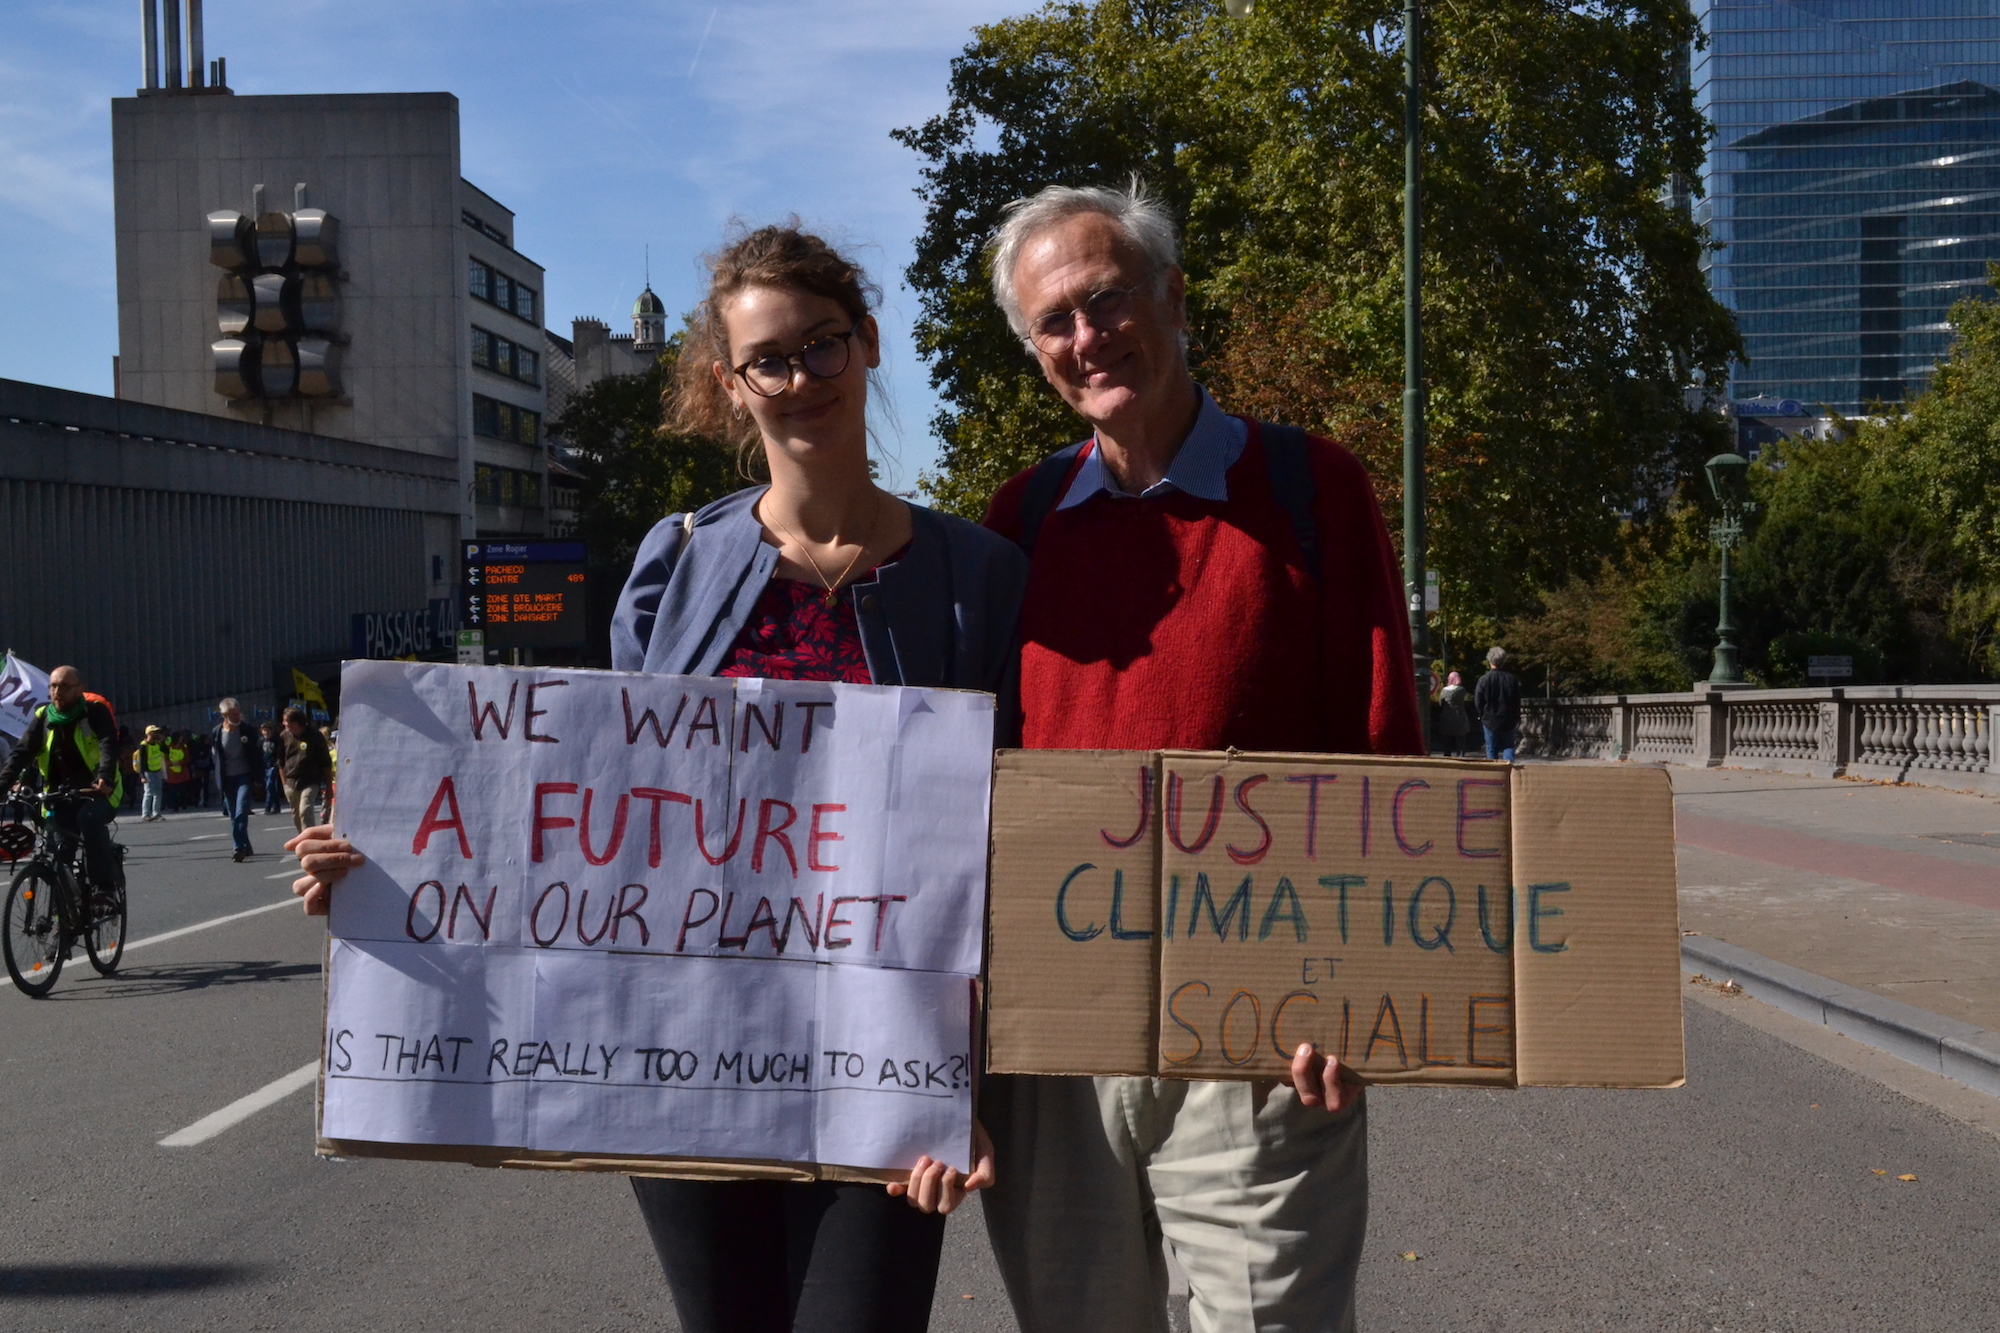 Zone Rogier
PACHECO
CENTRE 489
ZONE GTE MARKT
ZONE BROUCKERE
ZONE DANSAERT
PASSAGE 44
Hilton
WE WANT
A FUTURE
ON OUR PLANET
IS THAT REALLY TOO MUCH TO ASK?!
JUSTICE
CLIMATIQUE
ET
SOCIALE